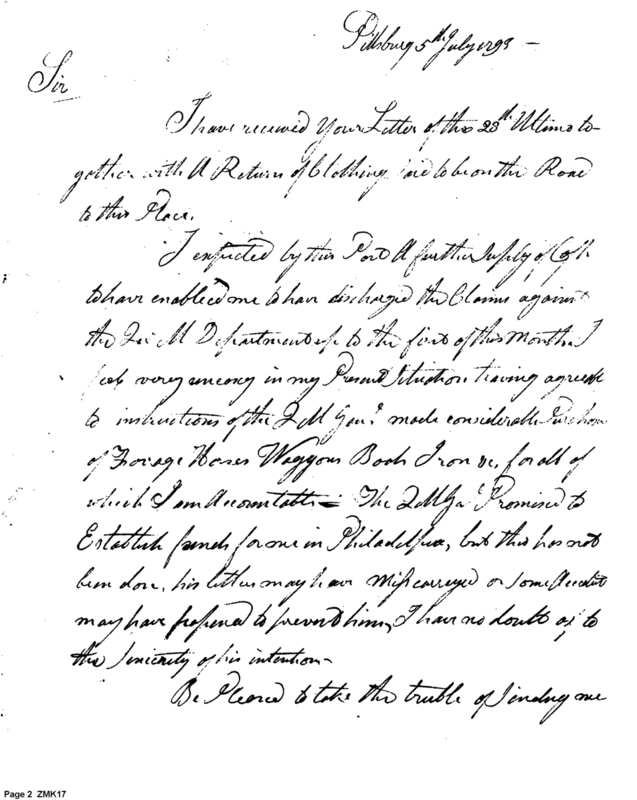 Pittsburg 5th July 1793 —
Sir
I have received Your Letter of the 28th Ultimo to-
gether with A Return of Clothing said to be on the Road
to this Place.
I expected by this Post A further Supply of Cash
to have enabled me to have discharged the Claims against
the Qr M Department up to the first of this Month. I
feel very uneasy in my Present Situation having agreeable
to instructions of the Q M Genl made considerable Purchases
of Forage Horses Waggons Boats Iron &c, for all of
which I am Accountable — The Q M Gl Promised to
Establish funds for me in Philadelphia, but this has not
been done, his letters may have Misscarryed or some Accident
may have hapened to prevent him, I have no doubt as to
the Sincerity of his intention —
Be Pleased to take the truble of Sending me
Page 2 ZMK17